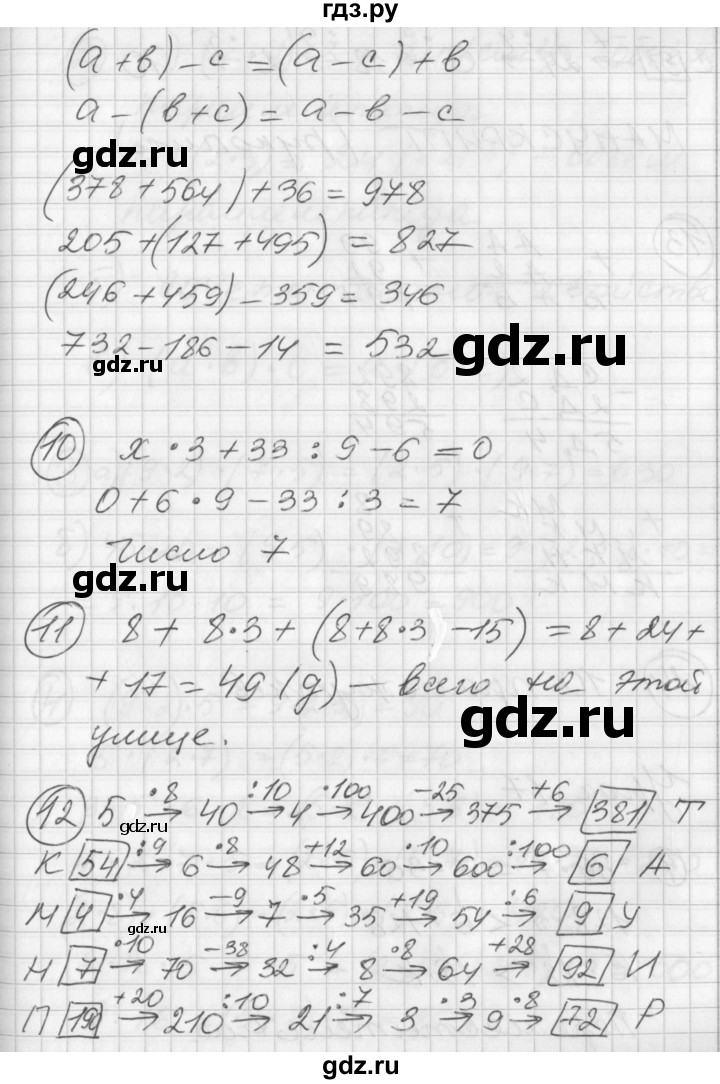 гдз.ру
(а + в) - с = (а - с) + в
а - (в + с) = а - в - с
gdz.ru
(378 + 564) + 36 = 978
205 + (127 + 495) = 827
(246 + 459) - 359 = 346
732 - 186 - 14 = 532
gdz.ru
gdz.ru
10 х · 3 + 33 : 9 - 6 = 0
0 + 6 · 9 - 33 : 3 = 7
gdz.ru
Число 7
gdz.ru
11 8 + 8·3 + (8 + 8·3 - 15) = 8 + 24 +
+ 17 = 49 (д) - всего на этой
gdz.ru
gdz.ru
улице.
12 5 ·8→ 40 :10→ 4 ·100→ 400 -25→ 375 +6→ 381 Т
gdz.ru
К 54 :9→ 6 ·8→ 48 +12→ 60 ·10→ 600 :100→ 6 А
М 4 ·4→ 16 -9→ 7 ·5→ 35 +19→ 54 :6→ 9 У
gdz.ru
Н 7 ·10→ 70 -38→ 32 :4→ 8 ·8→ 64 +28→ 92 И
П 190 +20→ 210 :10→ 21 :7→ 3 ·3→ 9 ·8→ 72 Р
gdz.ru
gdz.ru
gdz.ru